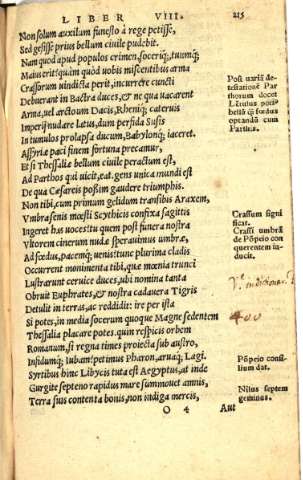 LIBER VIII. 215
Non solum auxilium funesto à rege petisse,
Sed gesisse prius bellum ciuile pudebit.
Nam quod apud populos crimen, socerique, tuumque,
Maius erit? quàm quod uobis miscentibus arma
Crassorum uindicta perit, incurrere cuncti
Debuerant in Bactra duces, & ne qua uacarent
Arma, uel arctoum Dacis, Rhenique cateruis
Imperij nudare latus, dum perfida Susis
In tumulos prolapsa ducum, Babylonque iaceret.
Assyriæ paci finem fortuna precamur,
Et si Thessaliæ bellum ciuile peractum est,
Ad Parthos qui uicit, eat. gens unica mundi est
De qua Cæsareis poßim gaudere triumphis.
Non tibi, cum primum gelidum transibis Araxem,
Vmbra senis mœsti Scythicis confixa sagittis
Ingeret has uoces? tu quem post funera nostra
Vltorem cinerum nudæ sperauimus umbræ,
Ad fœdus, pacemque uenis? tunc plurima cladis
Occurrent monimenta tibi, quæ mœnia trunci
Lustrarunt ceruice duces, ubi nomina tanta
Obruit Euphrates, & nostra cadauera Tigris
Detulit in terras, ac reddidit: ire per ista
Si potes, in media socerum quoque Magne sedentem
Thessalia placare potes. quin respicis orbem
Romanum, si regna times proiecta sub austro,
Infidumque Iubam? petimus Pharon, aruaque Lagi.
Syrtibus hinc Libycis tuta est Aegyptus, at inde
Gurgite septeno rapidus mare summouet amnis,
Terra suis contenta bonis, non indiga mercis,
O 4 Aut
Post uariā detestationē Parthorum docet
Lētulus potiꝰ
bella q̃ fœdus
optandū cum
Parthis.
Crassum significat.
Crassi umbrā
de Pōpeio conquerentem inducit.
400
Pōpeio consilium dat.
Nilus septemgeminus.